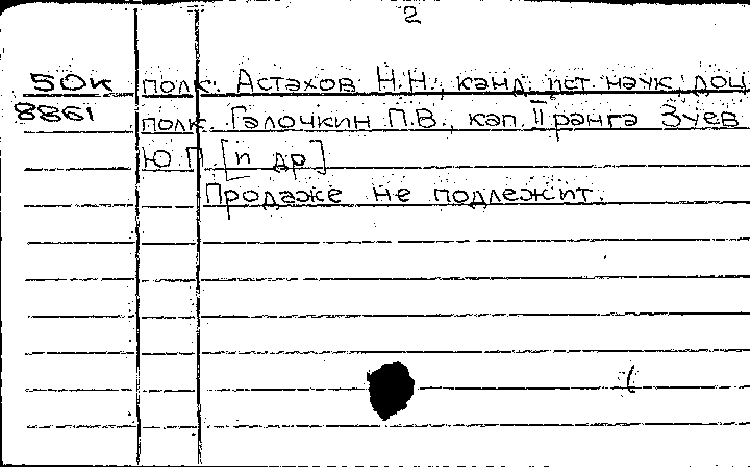 2
50к полк. Астахов Н.Н., канд. ист. наук, доц.
8861 полк. Галочкин П.В., кап. II ранга Зуев
Ю.П. [и др]
Продаже не подлежит.